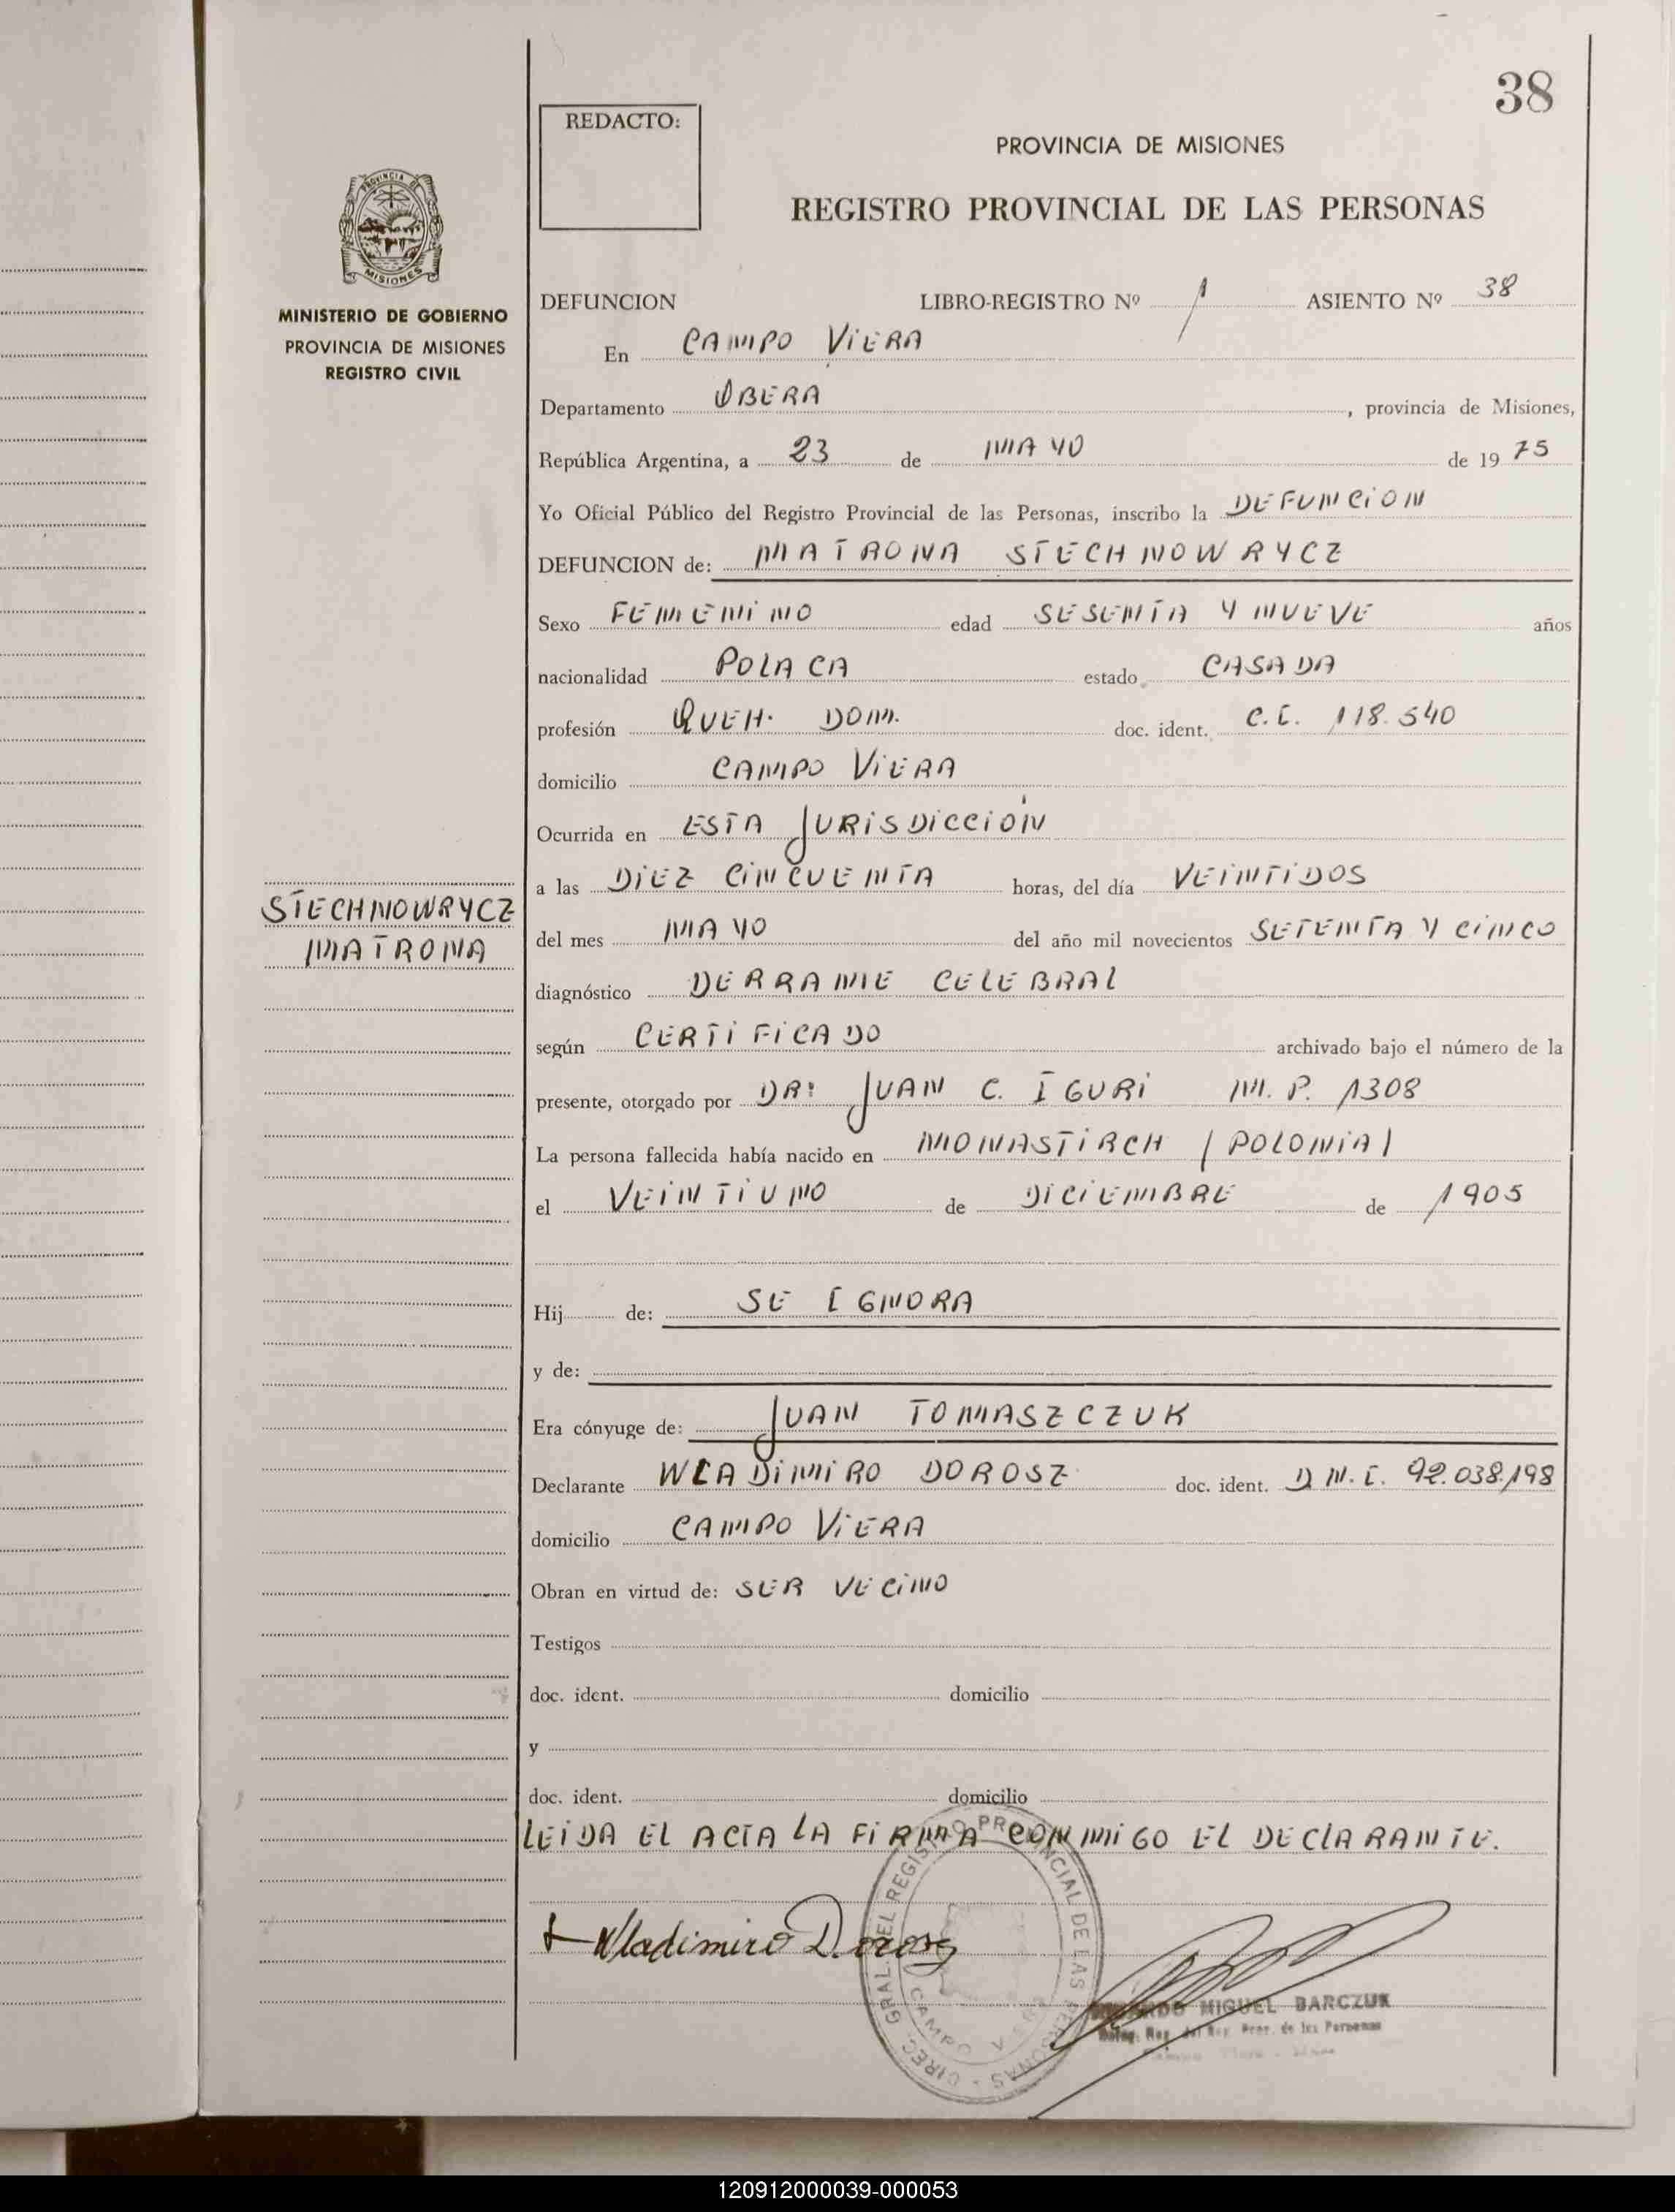 38
REDACTO:
PROVINCIA DE MISIONES
REGISTRO PROVINCIAL DE LAS PERSONAS
PROVINCIA DE
MISIONES
MINISTERIO DE GOBIERNO
PROVINCIA DE MISIONES
REGISTRO CIVIL
DEFUNCION LIBRO-REGISTRO Nº 1 ASIENTO Nº 38
En CAMPO VIERA
Departamento OBERA, provincia de Misiones,
República Argentina, a 23 de MAYO de 1975
Yo Oficial Público del Registro Provincial de las Personas, inscribo la DEFUNCION
DEFUNCION de: MATRONA STECHNOWRYCZ
Sexo FEMENINO edad SESENTA Y NUEVE años
nacionalidad POLACA estado CASADA
profesión QUEH. DOM. doc. ident. C.I. 118.540
domicilio CAMPO VIERA
Ocurrida en ESTA JURISDICCIÓN
a las DIEZ CINCUENTA horas, del día VEINTIDOS
STECHNOWRYCZ
MATRONA
del mes MAYO del año mil novecientos SETENTA Y CINCO
diagnóstico DERRAME CELEBRAL
según CERTIFICADO archivado bajo el número de la
presente, otorgado por DR: JUAN C. IGURI M.P. 1308
La persona fallecida había nacido en MONASTIRCH / POLONIA /
el VEINTIUNO de DICIEMBRE de 1905
Hij de: SE IGNORA
y de:
Era cónyuge de: JUAN TOMASZCZUK
Declarante WLADIMIRO DOROSZ doc. ident. D.N.I. 92.038.198
domicilio CAMPO VIERA
Obran en virtud de: SER VECINO
Testigos
doc. ident. domicilio
y
doc. ident. domicilio
LEIDA EL ACTA LA FIRMA CONMIGO EL DECLARANTE.
Wladimiro Dorosz
DIREC. GRAL. DEL REGISTRO PROVINCIAL DE LAS PERSONAS
CAMPO
MIGUEL BARCZUK
Prov. de las Personas
120912000039-000053